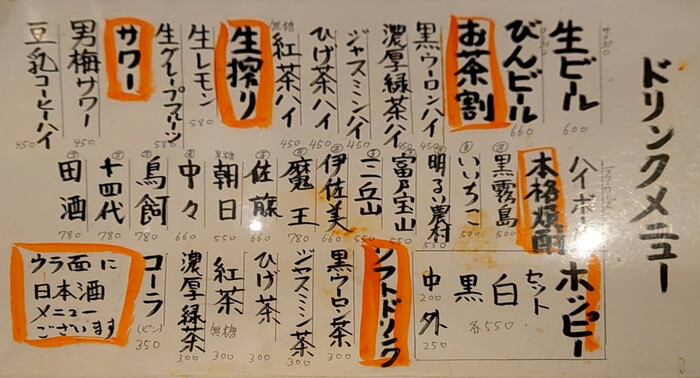 ドリンクメニュー
生ビール 600
びんビール 660
お茶割
黒ウーロンハイ 450
濃厚緑茶ハイ 450
ジャスミンハイ 450
ひげ茶ハイ 450
無糖 紅茶ハイ 450
生搾り
生レモン 580
生グレープフルーツ
サワー
男梅サワー 450
豆乳コーヒーハイ 450
ハイボール
本格焼酎
黒霧島 500
いいちこ 500
明るい農村 550
富乃宝山 550
三丘山 550
伊佐美 660
魔王 780
佐藤 660
朝日 550
中々 660
鳥飼 780
十四代 780
田酒 780
ホッピー
セット
白
黒
各550
中 200
外 250
ソフトドリンク
黒ウーロン茶 300
ジャスミン茶 300
ひげ茶 300
紅茶 無糖 300
濃厚緑茶 300
コーラ (ビン) 350
ウラ面に
日本酒
メニュー
ございます